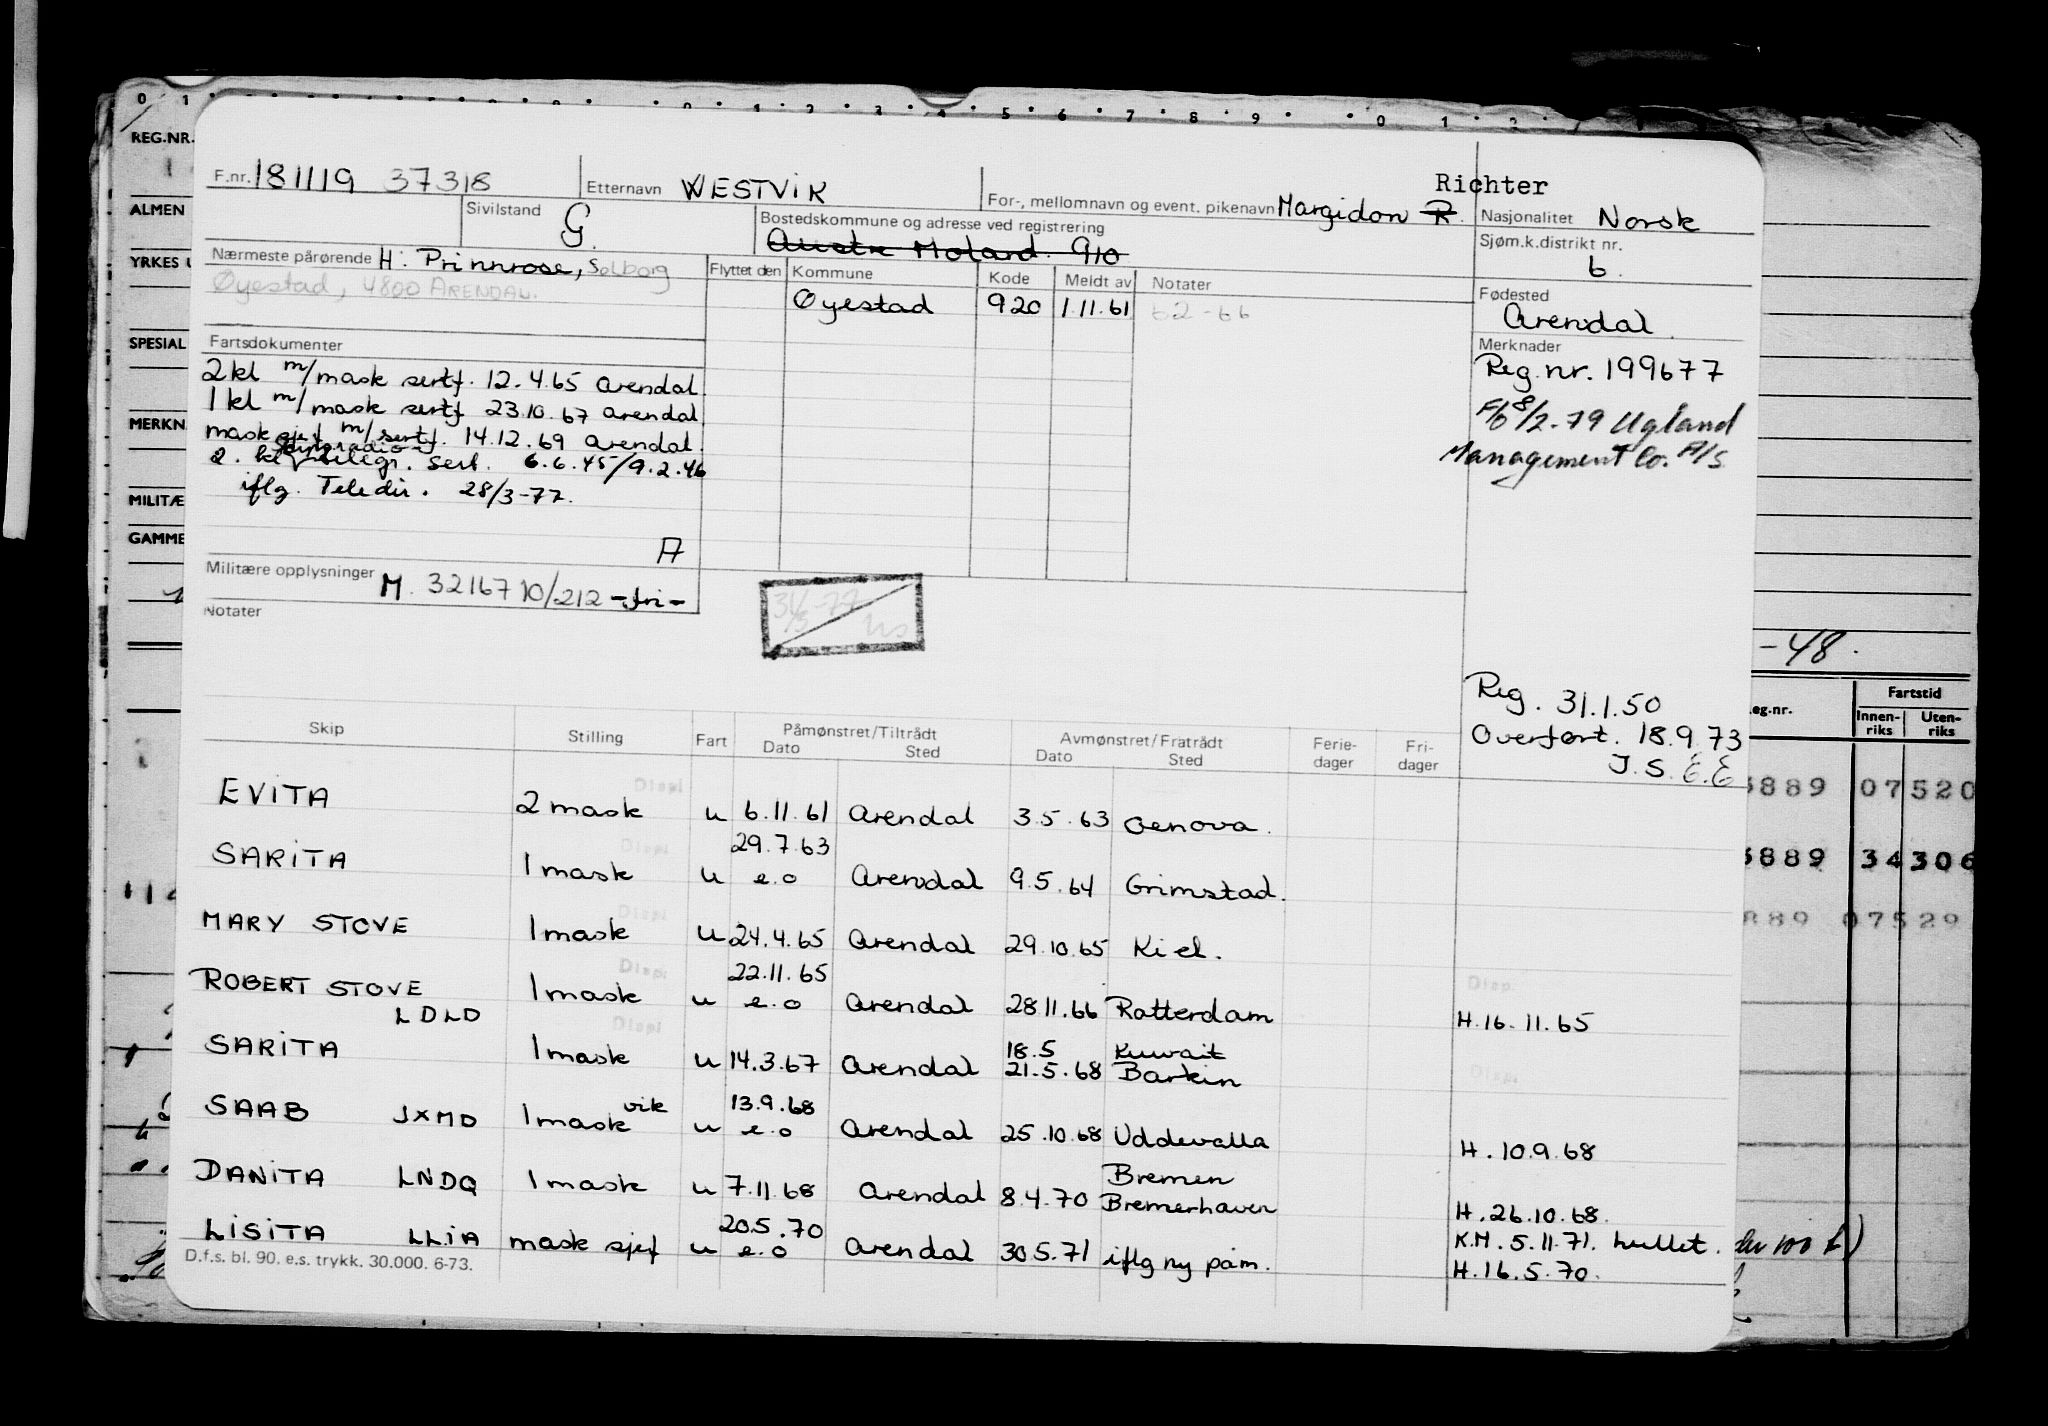 0 1 0 1 2 3 4 5 6 7 8 9 0 1 2
REG.NR.
F.nr. 181119 37318 Etternavn WESTVIK For-, mellomnavn og event. pikenavn Margidon R. Richter
ALMEN
Sivilstand G. Bostedskommune og adresse ved registrering Nasjonalitet Norsk
Austre Moland. 910 Sjøm.k.distrikt nr. 6.
YRKES
Nærmeste pårørende H: Prinnrose, Solborg Flyttet den Kommune Kode Meldt av Notater
Øyestad, 4800 ARENDAL.
Øyestad 920 1.11.61 62-66
Fødested
Arendal.
SPESIAL
Fartsdokumenter Merknader
2 kl m/mask sertf. 12.4.65 Arendal. Reg.nr. 199677
1 kl m/mask sertf 23.10.67 Arendal
F/b 8/2-79 Ugland
MERKN.
mask sjef m/sertf. 14.12.69 Arendal.
Management Co. A/S
2. kl telegr. sert. 6.6.45/9.2.46
iflg. Teledir. 28/3-77.
MILITÆ
GAMME
A
Militære opplysninger M. 3216710/212 -fri-
31/3-77
Notater
-48.
Reg. 31.1.50
Overført. 18.9.73
J.S. E.E
Fartstid
eg.nr. Innen-riks Uten-riks
Skip Stilling Fart Påmønstret/Tiltrådt Avmønstret/Fratrådt Ferie-dager Fri-dager
Dato Sted Dato Sted
Displ
EVITA 2 mask u 6.11.61 Arendal 3.5.63 Genova.
8889 07520
Displ
29.7.63
SARITA 1 mask u e.o Arendal 9.5.64 Grimstad.
8889 34306
Displ
MARY STOVE 1 mask u 24.4.65 Arendal 29.10.65 Kiel.
889 07529
Displ
22.11.65
Displ
ROBERT STOVE 1 mask u e.o Arendal 28.11.66 Rotterdam H.16.11.65
LDLD
Displ
SARITA 1 mask u 14.3.67 Arendal 18.5 Kuwait
21.5.68
Displ
vik 13.9.68
SAAB JXMD 1 mask u e.o Arendal 25.10.68 Uddevalla H.10.9.68
Bremen
DANITA LNDQ 1 mask u 7.11.68 Arendal 8.4.70 Bremerhaven H.26.10.68.
20.5.70
LISITA LLIA mask sjef u e.o Arendal 30.5.71 iflg ny påm. K.M. 5.11.71. hullet.
H.16.5.70.
D.f.s. bl. 90. e.s. trykk. 30.000. 6-73.